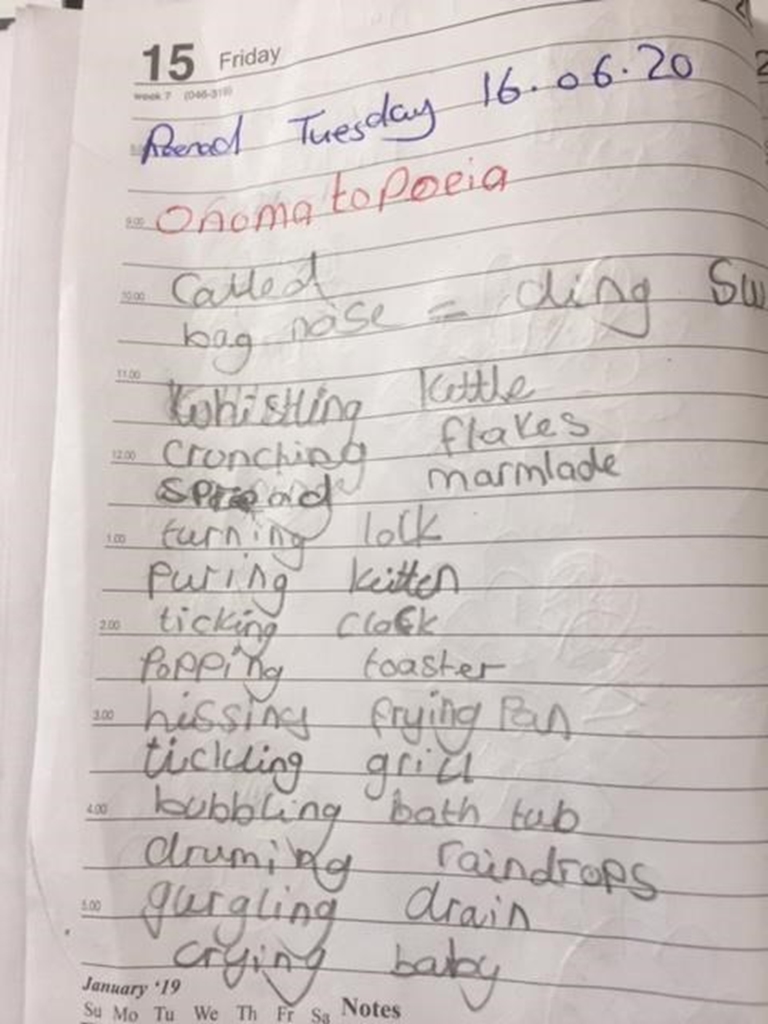 15 Friday
week 7 (046-319)
Tuesday 16.06.20
9.00 Onomatopoeia
Called
10.00
bag noise = ding Sw
11.00
Whistling kettle
crunching flakes
12.00
spread marmlade
turning lock
1.00
puring kitten
ticking clock
2.00
Popping toaster
hissing frying Pan
3.00
tickling grill
bubbling bath tub
4.00
druming raindrops
gurgling drain
5.00
crying baby
January '19
Su Mo Tu We Th Fr Sa Notes